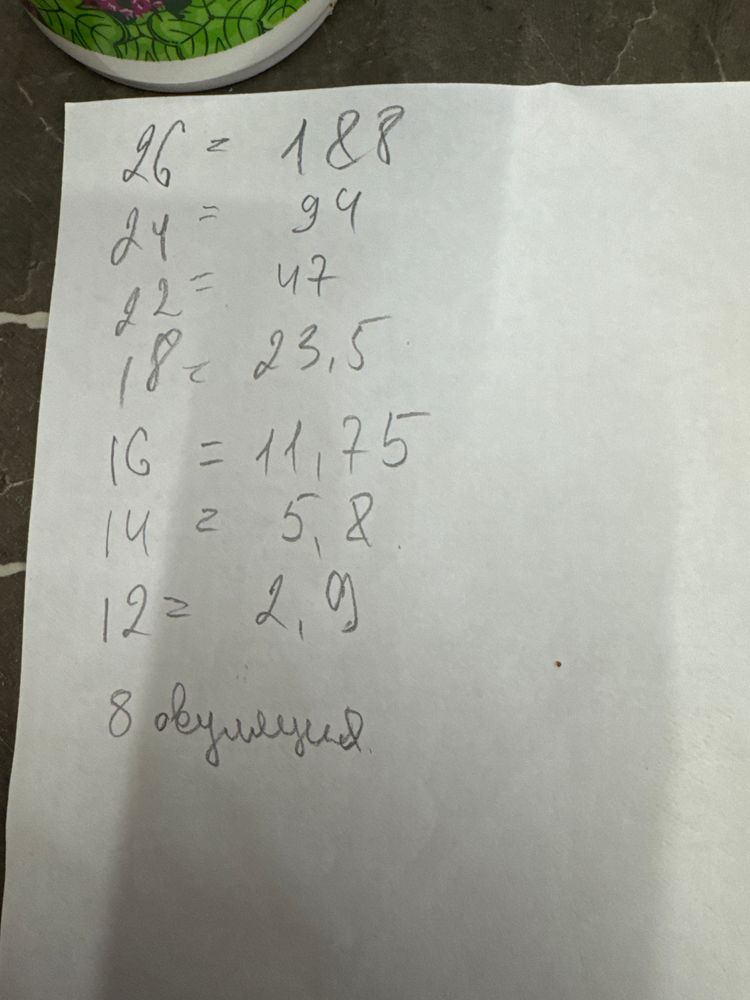 26 = 188
24 = 94
22 = 47
18 = 23,5
16 = 11,75
14 = 5,8
12 = 2,9
8 овуляция.